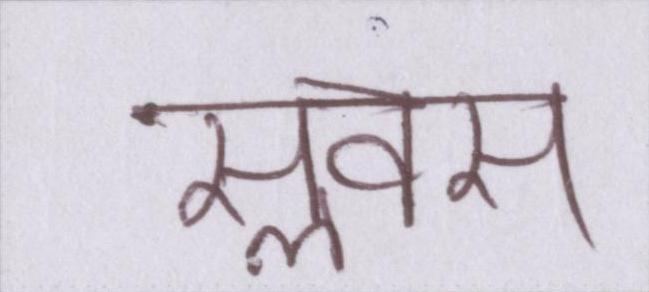 स्लवेस